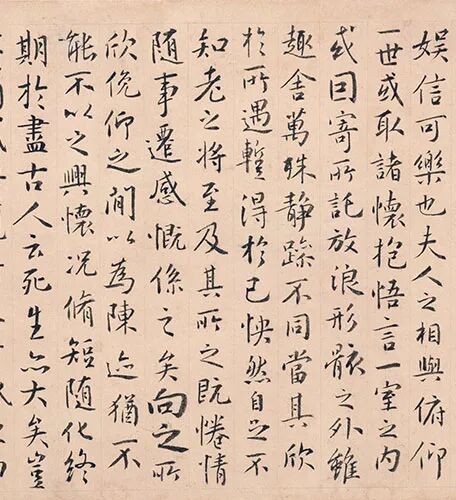 娛信可樂也夫人之相與俯仰
一世或取諸懷抱悟言一室之内
或因寄所託放浪形骸之外雖
趣舍萬殊静躁不同當其欣
於所遇蹔得於己怏然自足不
知老之将至及其所之既惓情
随事遷感慨係之矣向之所
欣俛仰之閒以為陳迹猶不
能不以之興懷况脩短随化終
期於盡古人云死生亦大矣豈